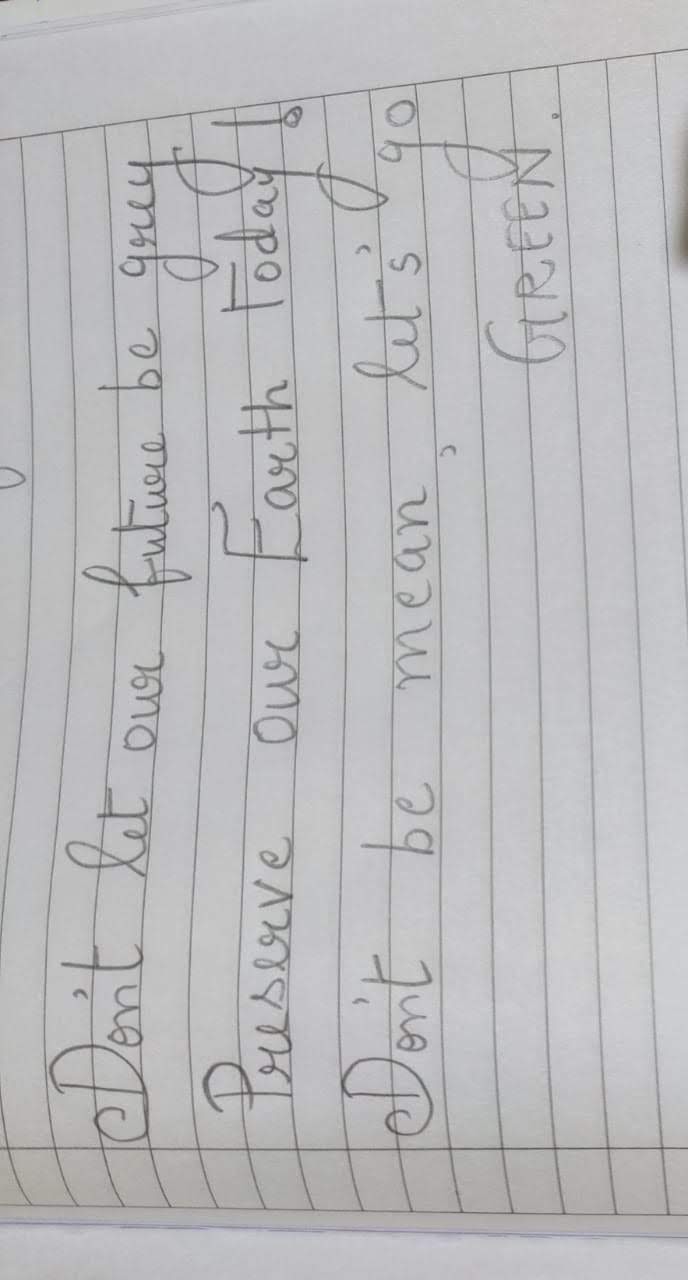 Don't let our future be grey
Preserve our Earth Today!
Don't be mean, let's go
GREEN.